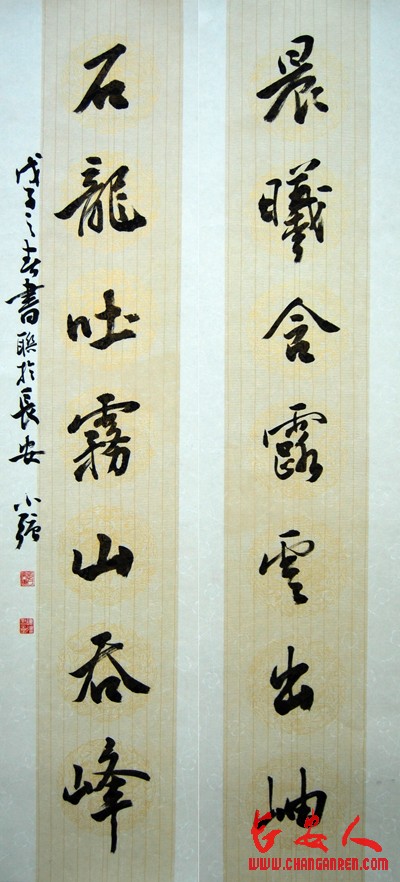 晨曦含露雲出岫
石龍吐霧山吞峰
戊子之春書聯於長安 小强
长安人
WWW.CHANGANREN.COM